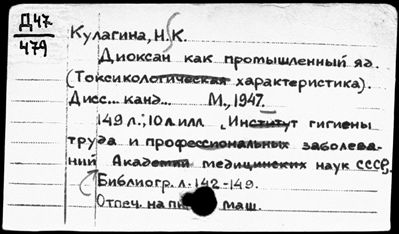 Д47
479
Кулагина, Н. К.
Диоксан как промышленный яд.
(Токсикологическая характеристика).
Дисс... канд... М., 1947.
149 л.; 10 л. илл. (Институт гигиены
труда и профессиональных заболева-
ний Академий медицинских наук СССР).
Библиогр. л. 142-149.
Отпеч. на маш.